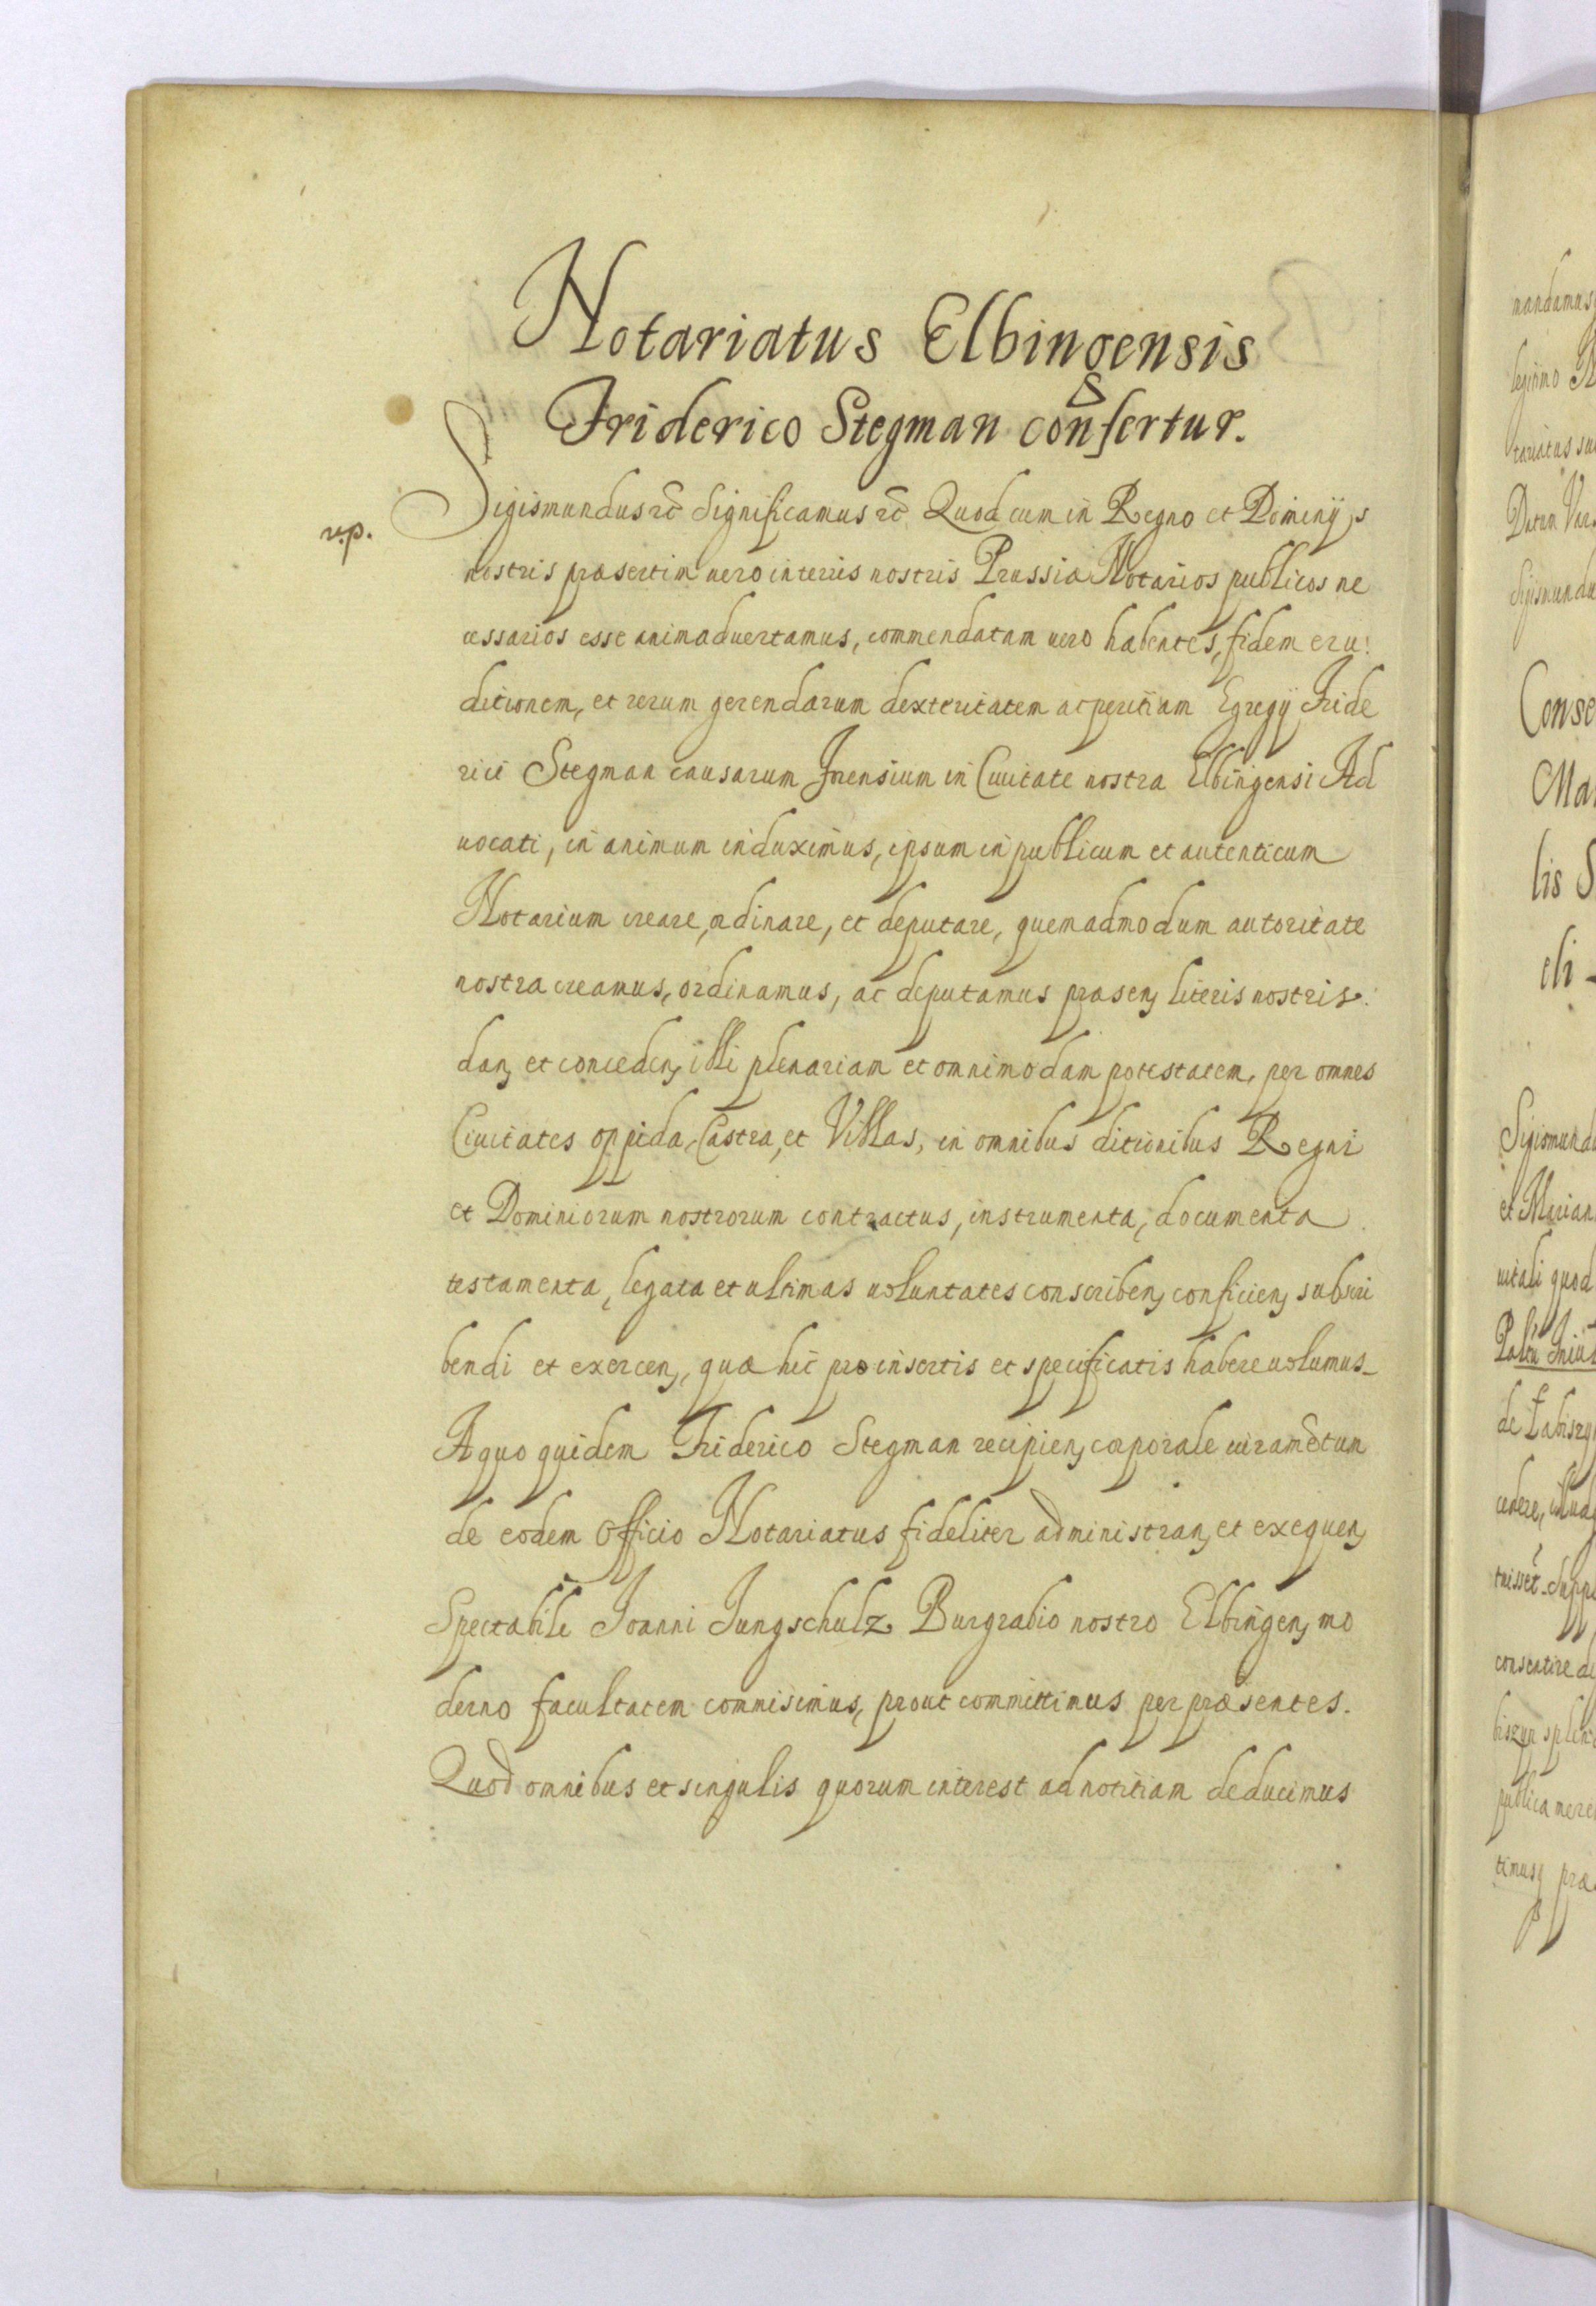 Notariatus Elbingensis
Friderico Stegman confertur.
v.p.
Sigismundus etc Significamus etc Quod cum in Regno et Dominijs
nostris præsertim uero in terris nostris Prussiæ Notarios publicos ne
cessarios esse animaduertamus, commendatam uero habentes, fidem eru:
ditionem, et rerum gerendarum dexteritatem ac peritiam Egregij Fride
rici Stegman causarum Forensium in Ciuitate nostra Elbingensi Ad
uocati, in animum induximus, ipsum in publicum et autenticum
Notarium creare, ordinare, et deputare, quemadmodum autoritate
nostra creamus, ordinamus, ac deputamus præsen, literis nostris.
dan, et conceden, illi plenariam et omnimodam potestatem, per omnes
Ciuitates oppida, Castra, et Villas, in omnibus ditionibus Regni
et Dominiorum nostrorum contractus, instrumenta, documenta
testamenta, legata et ultimas uoluntates conscriben, conficien, subscri
bendi et exercen, quæ hic pro insertis et specificatis habere uolumus
A quo quidem Friderico Stegman recipien, corporale iuramētum
de eodem Officio Notariatus fideliter administran, et exequen,
Spectabili Joanni Jungschulz Burgrabio nostro Elbingen, mo
derno facultatem commisimus, prout committimus per præsentes.
Quod omnibus et singulis quorum interest ad notitiam deducimus
mandamus
legitimo
Sigismundu
Conse
lis S
Sigismundu
et Marian
quod
de Łabiszyn
cedere,
consentire de
publica